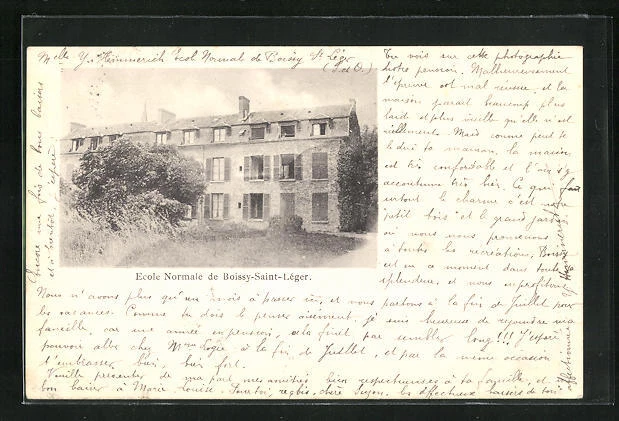 Melle Y. Hemmerich Ecol Normal de Boissy St Léger
(S. et O.)
Tu vois sur cette photographie
notre pension. Malheureusement
l'épreuve est mal réussie et la
maison paraît beaucoup plus
laide et plus vieille qu'elle n'est
réellement. Mais comme peut te
le dire ta maman, la maison
est très confortable et l'on s'y
accoutume très bien. Ce qui fait
surtout le charme c'est notre
petit bois et le grand jardin
où nous nous promenons
à toutes les récréations. Boissy
est en ce moment dans toute
splendeur, et nous en profitons
Ecole Normale de Boissy-Saint-Léger.
Nous n'avons plus qu'un mois à passer ici, et nous partons à la fin de Juillet pour
les vacances. Comme tu dois le penser aisément, je suis heureuse de rejoindre ma
famille, car une année en pension, cela finit par sembler long!!! J'espère
pouvoir aller chez Mme à la fin de Juillet, et par la même occasion
t'embrasser bien, bien fort.
Veuille présenter de ma part mes amitiés bien respectueuses à ta famille, et
bon baiser à Marie Louise. reçois, chère Suzon, les affectueux baisers de ton
affectionnée Y. Hemmerich
Encore une fois de bons baisers
et à bientôt, j'espère